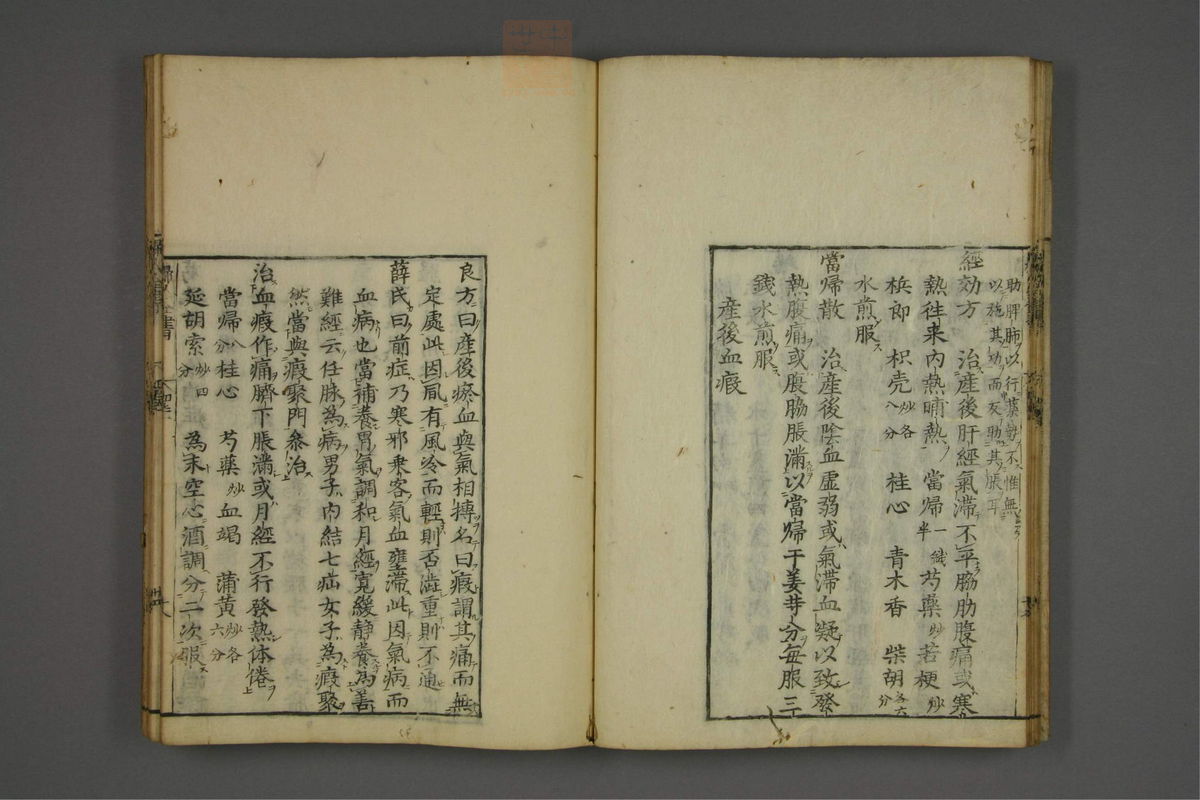 助脾肺以行薬勢不惟無
以施其功而反助其脹耳
經効方 治産後肝經氣滞不平脇肋腹痛或寒
熱往来内熱晡熱 當帰一錢半 芍薬炒 苦梗炒
梹郎 枳壳炒各八分 桂心 青木香 柴胡各六分
水煎服
當帰散 治産後陰血虚弱或氣滞血凝以致發
熱腹痛或腹脇脹滿以當帰干姜等分毎服三
錢水煎服
産後血瘕
良方曰産後瘀血與氣相摶名曰瘕謂其痛而無
定處此因夙有風冷而輕則否澁重則不通
薛氏曰前症乃寒邪乗客氣血壅滞此因氣病而
血病也當補養胃氣調和月經寛緩静養為善
難經云任脉為病男子内結七疝女子為瘕聚
然當與瘕聚門叅治
治血瘕作痛臍下脹滿或月經不行發熱体倦
當帰八分 桂心 芍薬炒 血竭 蒲黄炒各六分
延胡索炒四分 為末空心酒調分二次服